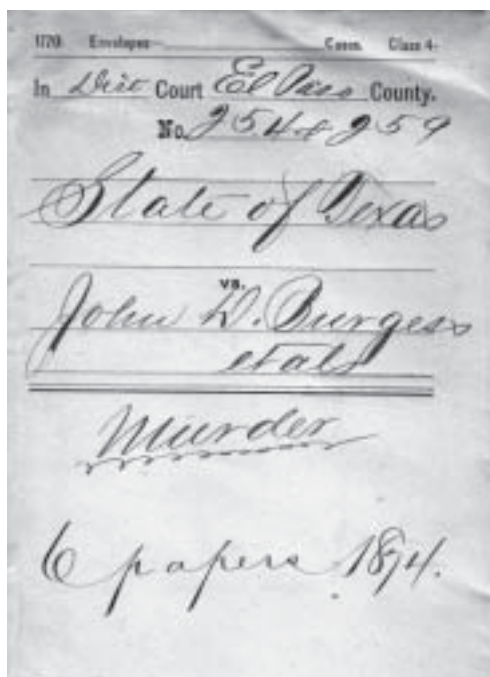 1770. Envelopes— Cases. Class 4.
In Dist Court El Paso County.
No. 254 & 259
State of Texas
vs.
John D. Burgess
et als
Murder
6 papers 1874.